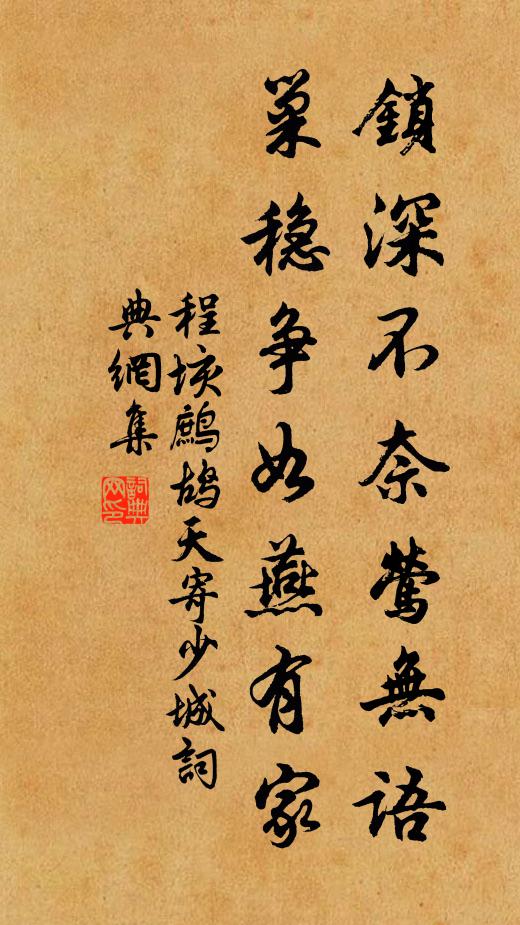 鎖深不奈鶯無語
巢穏争如燕有家
程垓鷓鴣天寄少城詞
典網集
詞典
网印